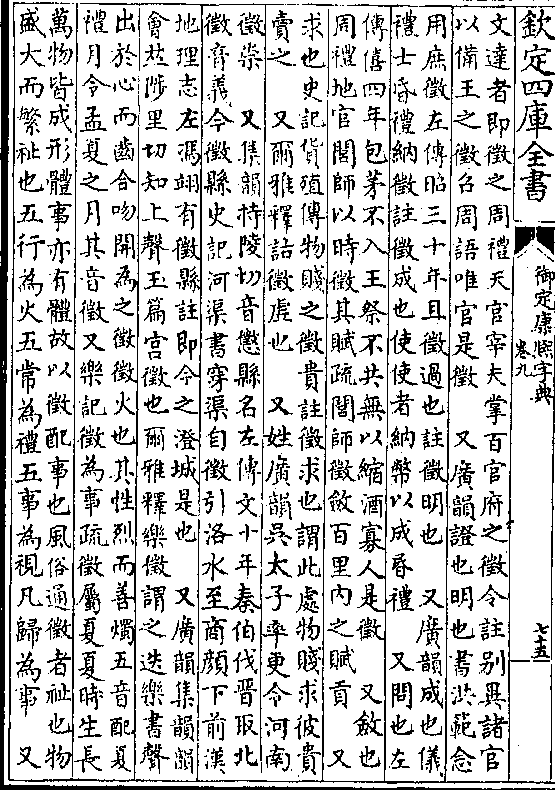 欽定四庫全書
御定康熙字典
卷九
七十五
文達者即徵之周禮天官宰夫掌百官府之徵令註别異諸官
以備王之徵召周語唯官是徵 又廣韻證也明也書洪範念
用庶徵左傳昭三十年且徵過也註徵明也 又廣韻成也儀
禮士昏禮納徵註徵成也使使者納幣以成昏禮 又問也左
傳僖四年包茅不入王祭不共無以縮酒寡人是徵 又斂也
周禮地官閭師以時徵其賦疏閭師徵斂百里内之賦貢 又
求也史記貨殖傳物賤之徵貴註徵求也謂此處物賤求彼貴
賣之 又爾雅釋詁徵虚也 又姓廣韻吳太子率更令河南
徵崇 又集韻持陵切音懲縣名左傳文十年秦伯伐晉取北
徵音義今徵縣史記河渠書穿渠自徵引洛水至商顔下前漢
地理志左馮翊有徵縣註即今之澄城是也 又廣韻集韻韻
會𠀤陟里切知上聲玉篇宫徵也爾雅釋樂徵謂之迭樂書聲
出於心而齒合吻開為之徵徵火也其性烈而善燭五音配夏
禮月令孟夏之月其音徵又樂記徵為事疏徵屬夏夏時生長
萬物皆成形體事亦有體故以徵配事也風俗通徵者祉也物
盛大而繁祉也五行為火五常為禮五事為視凡歸為事 又